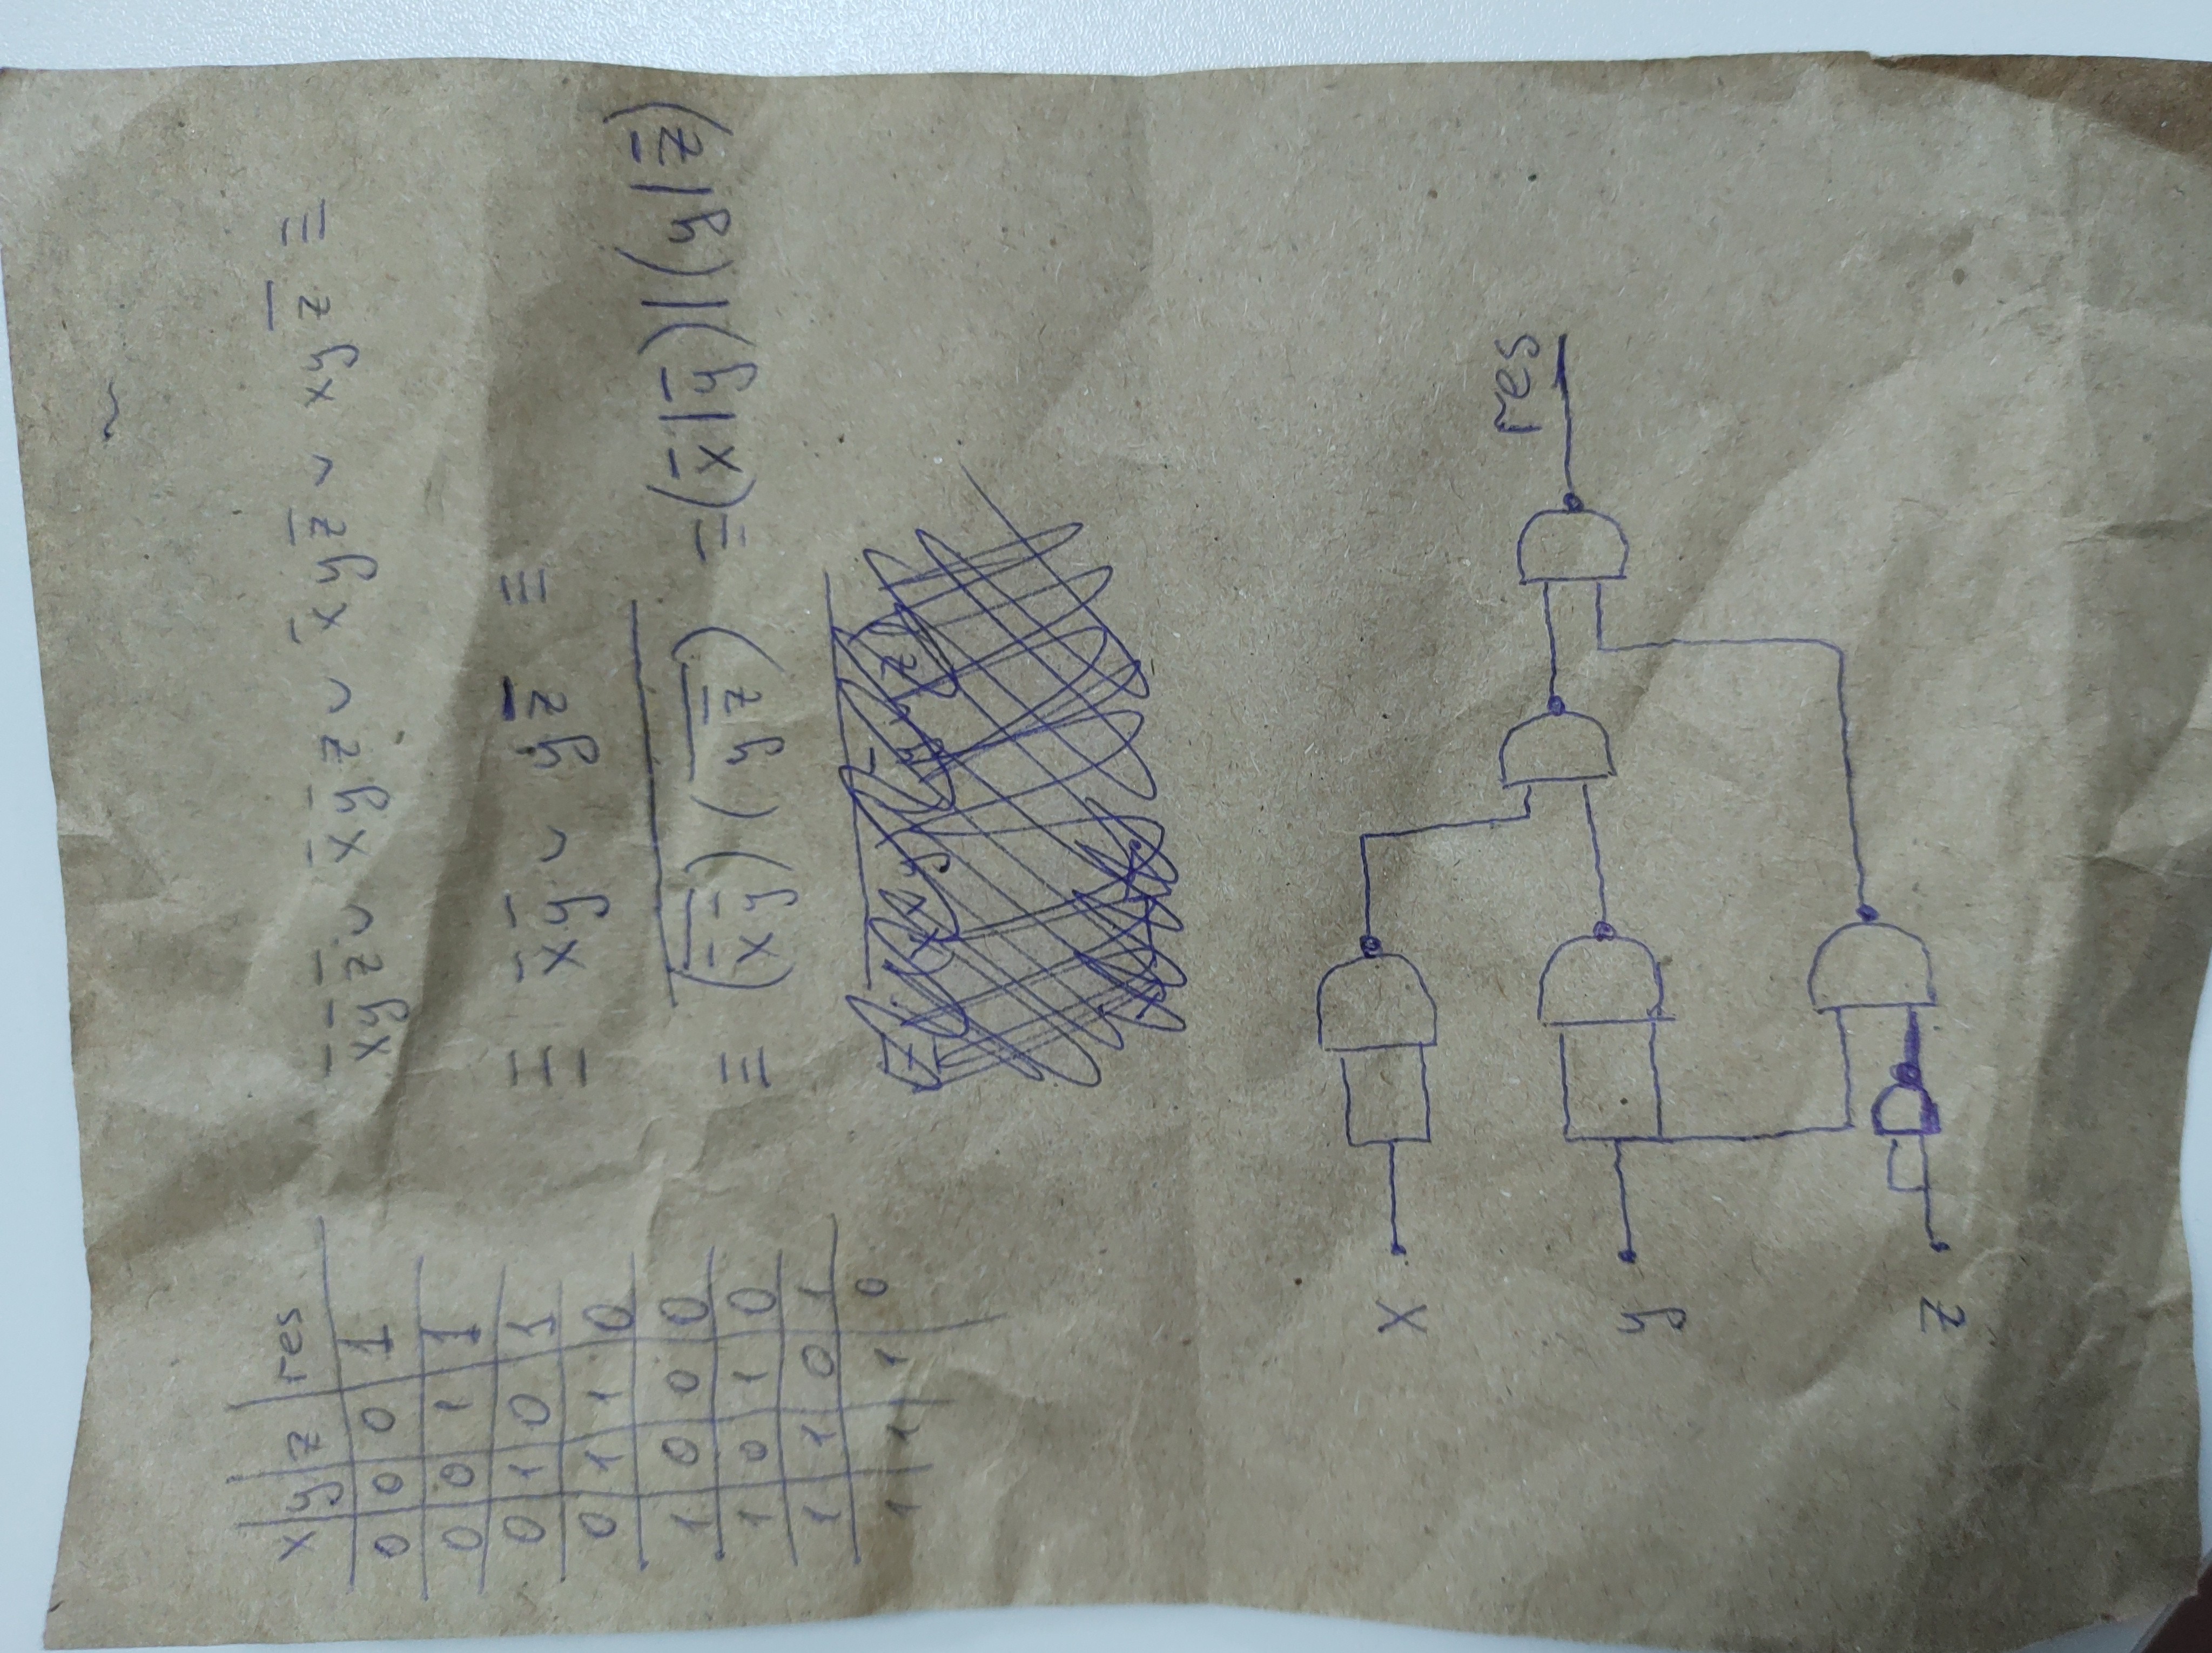 x y z res
0 0 0 1
0 0 1 1
0 1 0 1
0 1 1 0
1 0 0 0
1 0 1 0
1 1 0 1
1 1 1 0
x̄ȳz̄ ∨ x̄ȳz ∨ x̄yz̄ ∨ xyz̄ ≡
≡ x̄ȳ ∨ yz̄ ≡
≡ \overline{(\overline{x̄ȳ})(\overline{yz̄})} ≡ (x̄|ȳ)|(y|z̄)
x
res
y
z